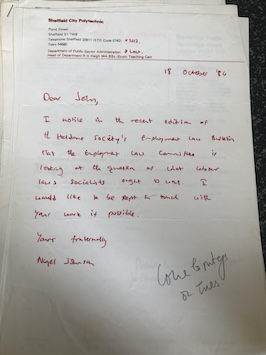 Sheffield City Polytechnic
Pond Street
Sheffield S1 1WB
Telephone Sheffield 20911 (STD Code 0742)
Telex 54680
Department of Public Sector Administration & Law
Head of Department
18 October '86
Dear John,
I notice in the recent edition of
the Haldane Society's Employment Law Bulletin
that the Employment Law Committee is
looking at the question of what labour
laws socialists ought to want. I
would like to be kept in touch with
your work if possible.
Yours fraternally
Nigel Johnson
on Tues